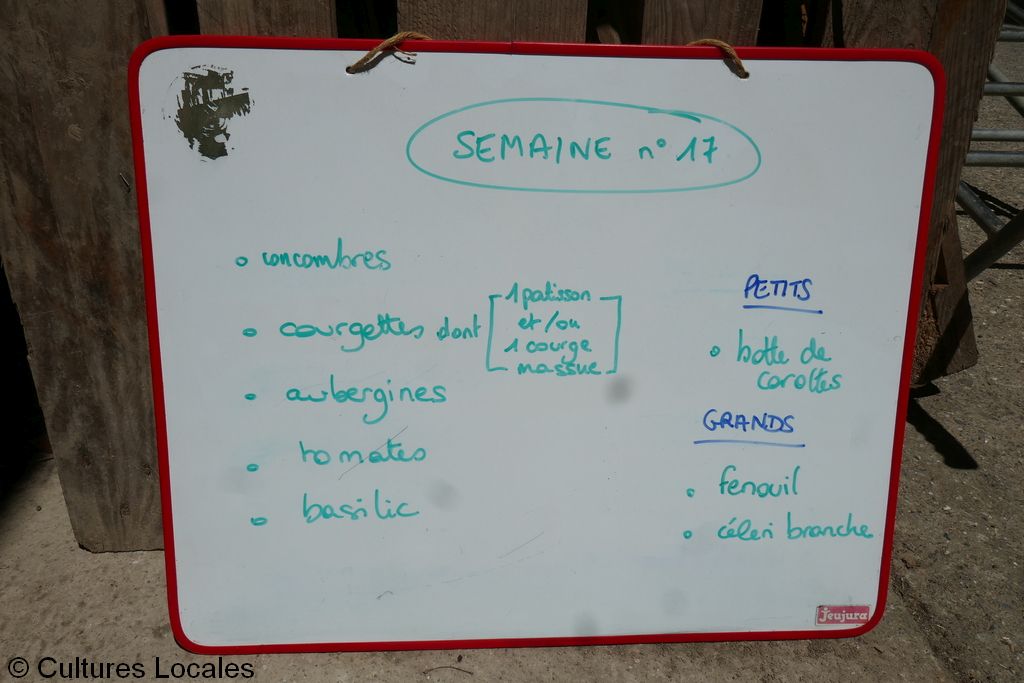 SEMAINE n° 17
• concombres
• courgettes dont
1 patisson
et/ou
1 courge
massue
• aubergines
• tomates
• basilic
PETITS
• botte de
carottes
GRANDS
• fenouil
• céleri branche
Jeujura
© Cultures Locales